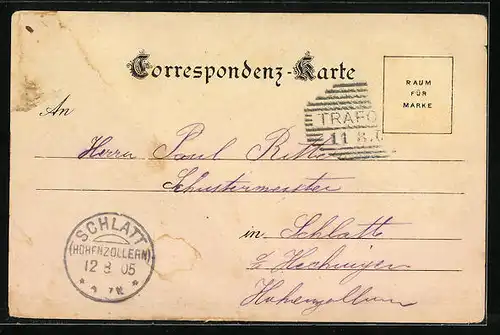 Correspondenz-Karte
RAUM
FÜR
MARKE
An
TRAFO
11 8.
Herrn Paul Ritter
Schustermeister
in Schlatt
b/ Hechingen
Hohenzollern
SCHLATT
(HOHENZOLLERN)
12 8 05